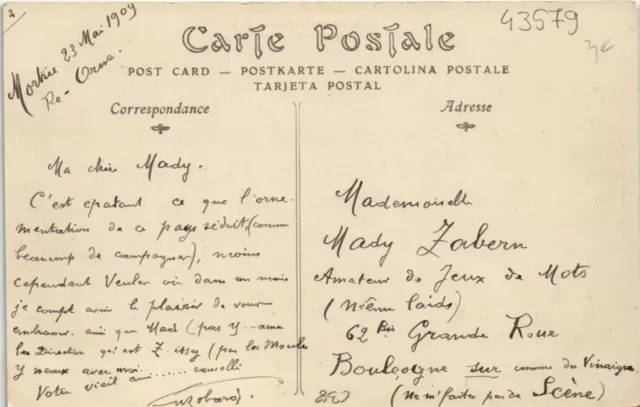 2
43579
Mortrée 23 Mai 1909
Orne.
Carte Postale
POST CARD — POSTKARTE — CARTOLINA POSTALE
TARJETA POSTAL
Correspondance
Adresse
Ma chère Mady.
C'est epatant ce que l'orne-
mentation de ce pays séduit, (comm
beaucoup de campagnes), moins
cependant Veules où dans un mois
je compte avoir le plaisir de vous
embrasser ainsi que Mad (pas y
la Direction qui est Z issy (pas la Moule
Y neaux avec moi
Votre vieil ami
Mademoiselle
Mady Zabern
Amateur de Jeux de Mots
(Même laids)
62 Bis Grande Roue
Boulogne sur comme du Vinaigre
(Ne m'faites pas de Scène)